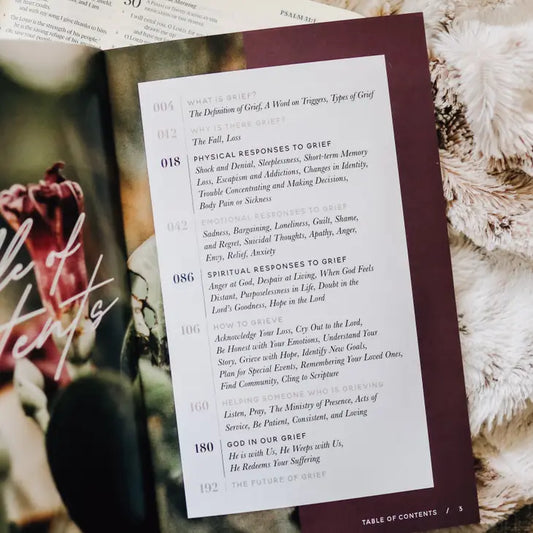 PSALM 31:1
004 WHAT IS GRIEF?
The Definition of Grief, A Word on Triggers, Types of Grief
012 WHY IS THERE GRIEF?
The Fall, Loss
018 PHYSICAL RESPONSES TO GRIEF
Shock and Denial, Sleeplessness, Short-term Memory
Loss, Escapism and Addictions, Changes in Identity,
Trouble Concentrating and Making Decisions,
Body Pain or Sickness
042 EMOTIONAL RESPONSES TO GRIEF
Sadness, Bargaining, Loneliness, Guilt, Shame,
and Regret, Suicidal Thoughts, Apathy, Anger,
Envy, Relief, Anxiety
086 SPIRITUAL RESPONSES TO GRIEF
Anger at God, Despair at Living, When God Feels
Distant, Purposelessness in Life, Doubt in the
Lord's Goodness, Hope in the Lord
106 HOW TO GRIEVE
Acknowledge Your Loss, Cry Out to the Lord,
Be Honest with Your Emotions, Understand Your
Story, Grieve with Hope, Identify New Goals,
Plan for Special Events, Remembering Your Loved Ones,
Find Community, Cling to Scripture
160 HELPING SOMEONE WHO IS GRIEVING
Listen, Pray, The Ministry of Presence, Acts of
Service, Be Patient, Consistent, and Loving
180 GOD IN OUR GRIEF
He is with Us, He Weeps with Us,
He Redeems Your Suffering
192 THE FUTURE OF GRIEF
TABLE OF CONTENTS / 3